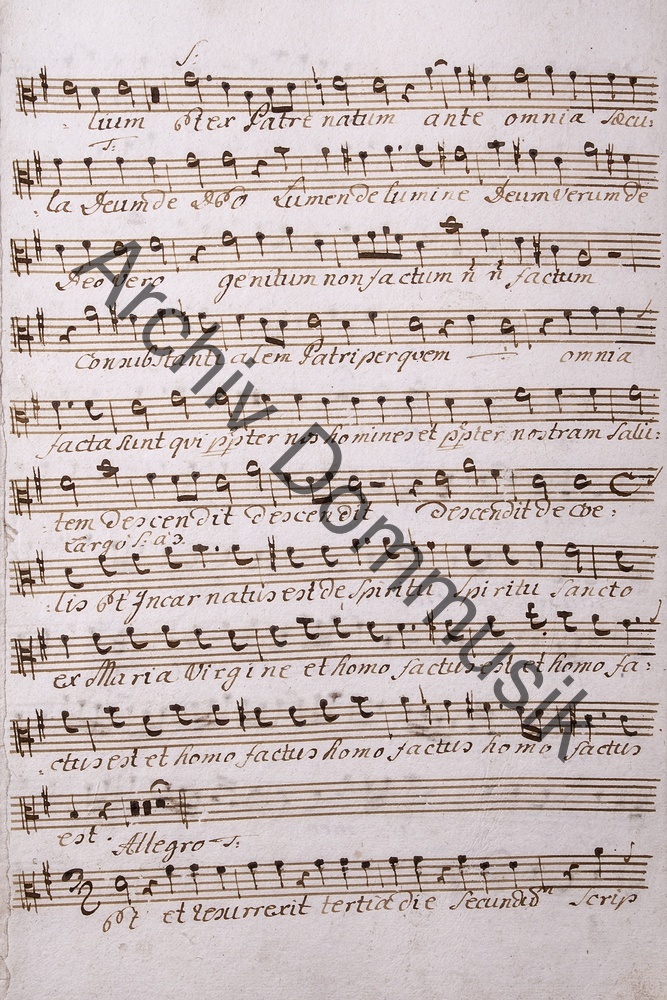 S:
: lium Et ex Patre natum ante omnia sæcu:
T:
: la Deum de Deo Lumen de lumine Deum verum de
Deo vero genitum non factum n̄ n̄ factum
Consubstantialem Patri per quem — omnia
facta sunt qui ppter nos homines et ppter nostram salu:
tem descendit descendit descendit de coe:
Largo S: a 3.
: lis Et Incarnatus est de spiritu spiritu sancto
ex Maria Virgine et homo factus est et homo fa:
: ctus est et homo factus homo factus homo factus
est. Allegro T:
Et et resurrexit tertia die secundum scrip
Archiv Dommusik